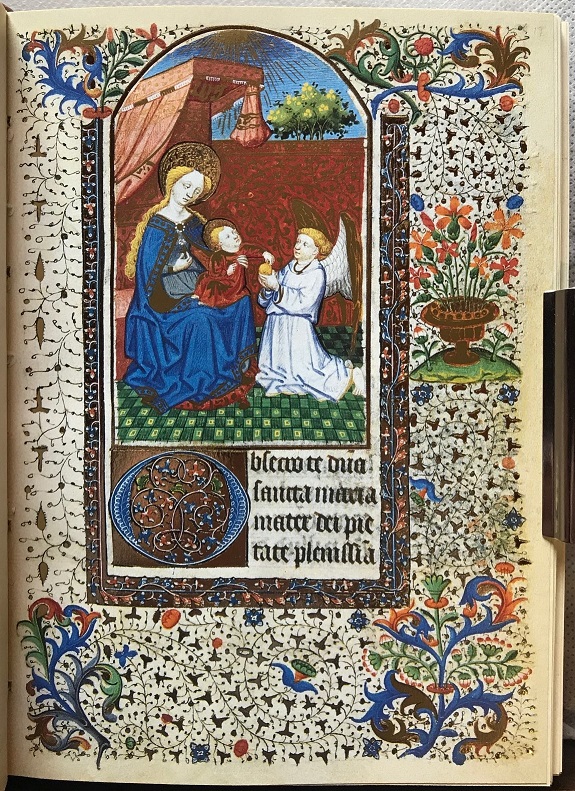 Obsecro te dna
sancta maria
mater dei pie
tate plenissia